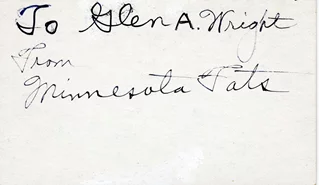 To Glen A. Wright
From
Minnesota Fats